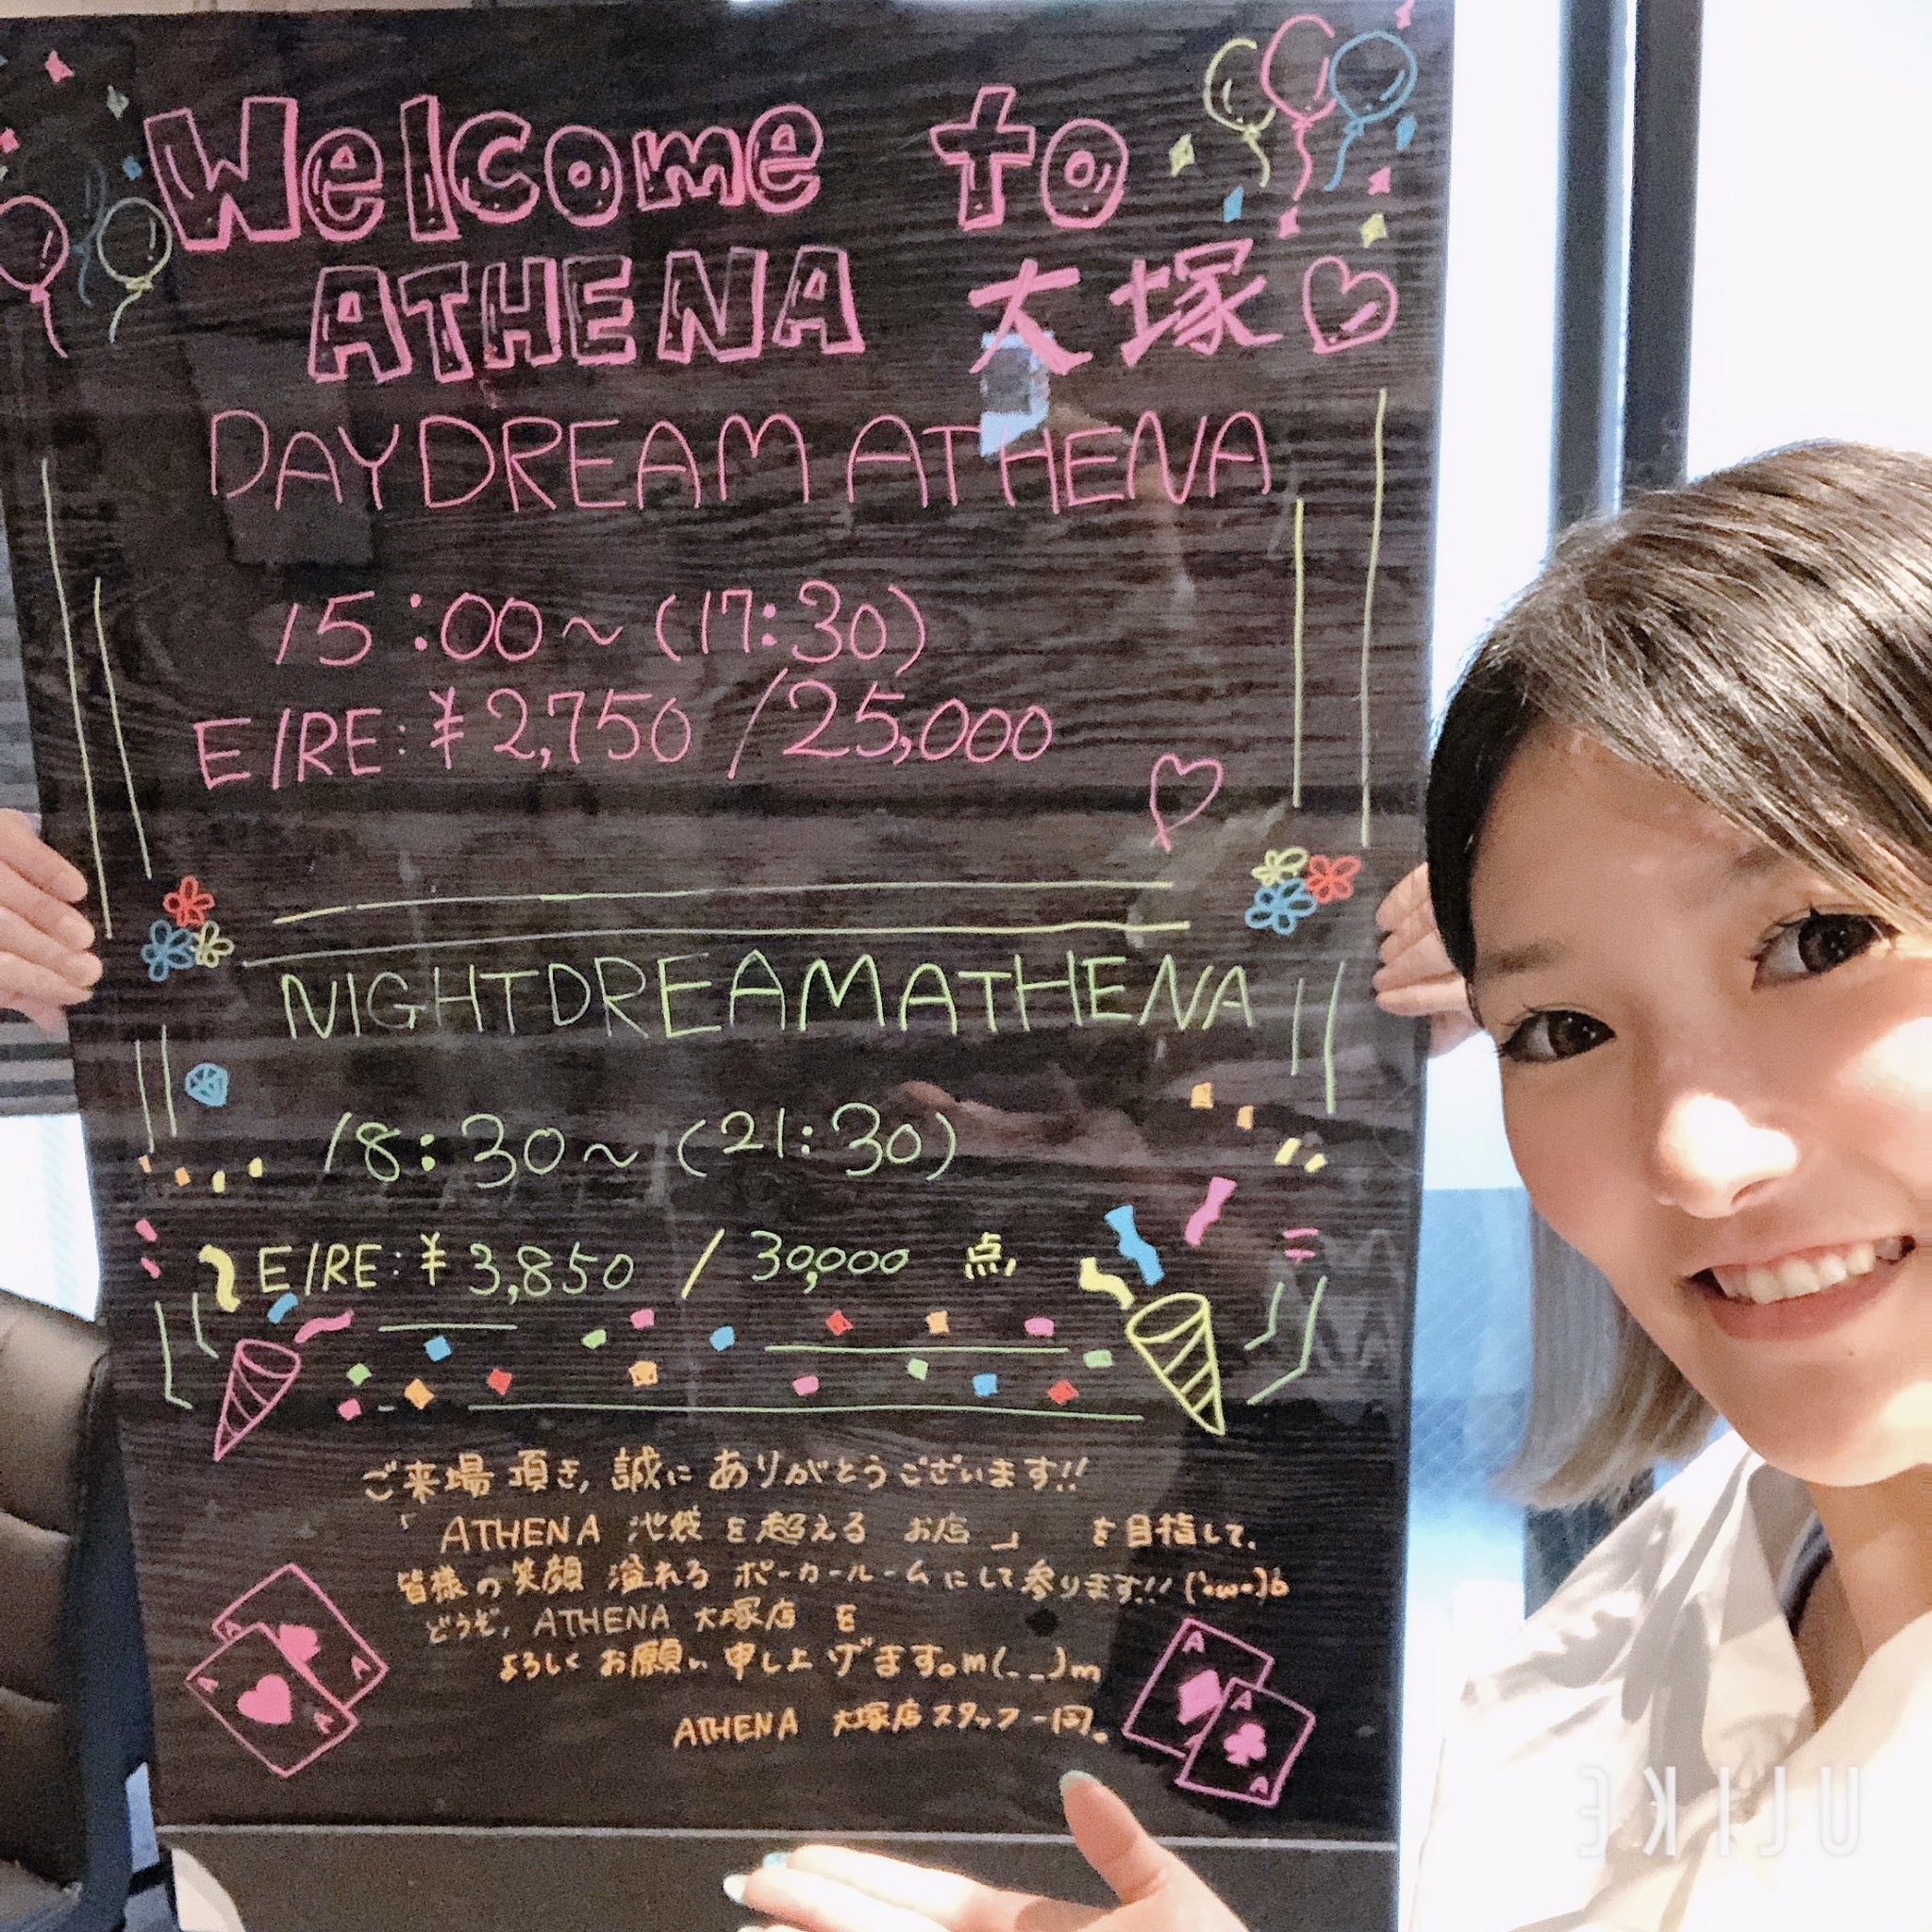 Welcome to
ATHENA 大塚
DAYDREAM ATHENA
15:00~(17:30)
E/RE:¥2,750 /25,000
NIGHTDREAMATHENA
18:30~(21:30)
E/RE:¥3,850 / 30,000 点
ご来場頂き,誠にありがとうございます!!
「ATHENA 池袋を超えるお店」を目指して、
皆様の笑顔溢れるポーカールームにして参ります!!(・ω・)b
どうぞ,ATHENA 大塚店を
よろしくお願い申し上げます。m(_ _)m
ATHENA 大塚店スタッフ一同。
A
A
A
A
A
A
A